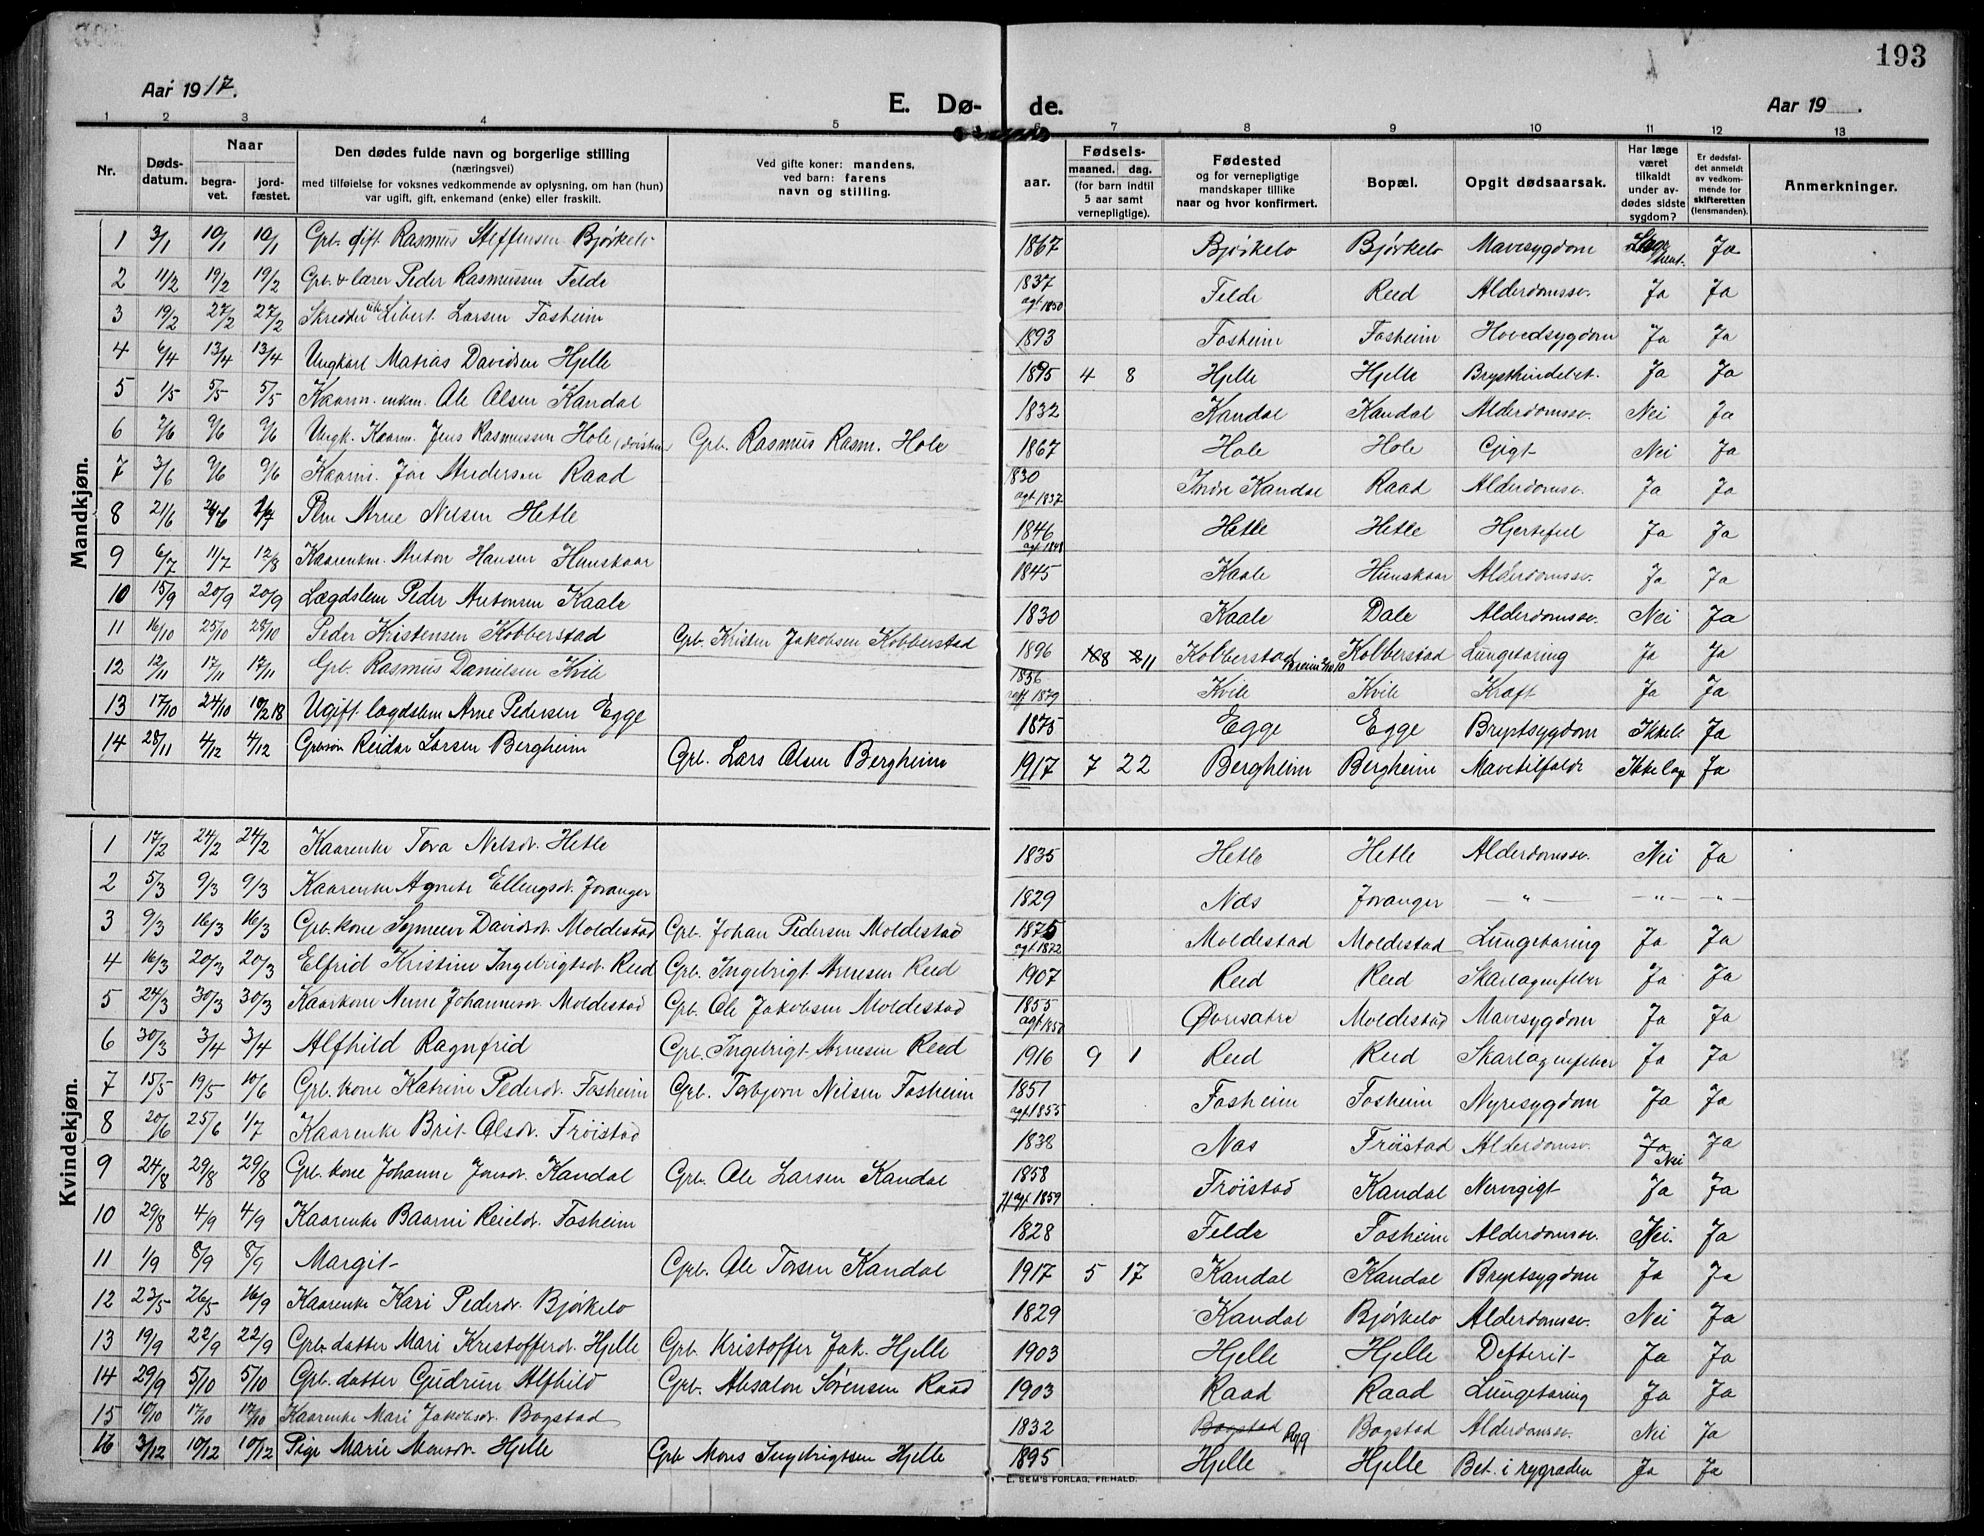 193
Aar 1917.
E. Dø- de.
Aar 19 .
1 2 3 4 5 6 7 8 9 10 11 12 13
Nr. Døds-datum. Naar begra-vet. jord-fæstet. Den dødes fulde navn og borgerlige stilling (næringsvei) med tilføielse for voksnes vedkommende av oplysning, om han (hun) var ugift, gift, enkemand (enke) eller fraskilt. Ved gifte koner: mandens, ved barn: farens navn og stilling. aar. Fødsels- maaned. dag. (for barn indtil 5 aar samt vernepligtige). Fødested og for vernepligtige mandskaper tillike naar og hvor konfirmert. Bopæl. Opgit dødsaarsak. Har læge været tilkaldt under av-dødes sidste sygdom? Er dødsfal-det anmeldt av vedkom-mende for skifteretten (lensmanden). Anmerkninger.
Mandkjøn.
1 3/1 10/1 10/1 Grb. gift Rasmus Steffensen Bjørkelo 1867 Bjørkelo Bjørkelo Mavesygdom Læge hent. Ja
2 11/2 19/2 19/2 Grb. & lærer Peder Rasmussen Felde 1837 agt 1850 Felde Reed Alderdomssv. Ja Ja
3 19/2 27/2 27/2 Skredder Libert Larsen Fosheim 1893 Fosheim Fosheim Hovedsygdom Ja Ja
4 6/4 13/4 13/4 Ungkarl Matias Davidsen Hjelle 1895 4 8 Hjelle Hjelle Brysthindebet. Ja Ja
5 1/5 5/5 5/5 Kaarm. enkm. Ole Olsen Kandal 1832 Kandal Kandal Alderdomssv. Nei Ja
6 2/6 9/6 9/6 Ungk. Kaarm. Jens Rasmussen Hole Grb. Rasmus Rasm. Hole 1867 Hole Hole Gigt Nei Ja
7 3/6 9/6 9/6 Kaarm. Jon Andersen Raad 1830 agt 1837 Indre Kandal Raad Alderdomssv. Ja Ja
8 21/6 Plm Arne Nelsen Hetle 1846 agt 1848 Hetle Hetle Hjertefeil Ja Ja
9 6/7 11/7 12/8 Kaarenkm. Anton Hansen Hunskaar 1845 Kaale Hunskaar Alderdomssv. Ja Ja
10 15/9 20/9 20/9 Lægdslem Peder Antonsen Kaale 1830 Kaale Dale Alderdomssv. Nei Ja
11 16/10 25/10 28/10 Peder Kristensen Kobberstad Grb. Kristen Jakobsen Kobberstad 1896 8 11 Kobberstad Kobberstad Lungetæring Ja Ja
12 12/11 17/11 17/11 Grb. Rasmus Danielsen Kvile 1856 agt 1879 Kvile Kvile Kræft Ja Ja
13 17/10 24/10 10/2 18 Ugift lægdslem Arne Pedersen Egge 1875 Egge Egge Brystsygdom Ikkele Ja
14 28/11 4/12 4/12 Grbsøn Reidar Larsen Bergheim Grb. Lars Olsen Bergheim 1917 7 22 Bergheim Bergheim Mavetilfælde Ikke læg Ja
Kvindekjøn.
1 17/2 24/2 24/2 Kaarenke Tora Nelsdt. Hetle 1835 Hetle Hetle Alderdomssv. Nei Ja
2 5/3 9/3 9/3 Kaarenke Agnete Ellingsdt. Joranger 1829 Nös Joranger - " - - " - - " -
3 9/3 16/3 16/3 Grb. kone Synneve Davidsdt. Moldestad Grb. Johan Pedersen Moldestad 1875 agt 1872 Moldestad Moldestad Lungetæring Ja Ja
4 16/3 20/3 20/3 Elfrid Kristine Ingebrigtsdt. Reed Grb. Ingebrigt Arnesen Reed 1907 Reed Reed Skarlagenfeber Ja Ja
5 24/3 30/3 30/3 Kaarkone Anne Johannesdt. Moldestad Grb. Ole Jakobsen Moldestad 1855 agt 1857 Øvresætre Moldestad Mavesygdom Ja Ja
6 30/3 3/4 3/4 Alfhild Ragnfrid Grb. Ingebrigt Arnesen Reed 1916 9 1 Reed Reed Skarlagenfeber Ja Ja
7 15/5 19/5 10/6 Grb. kone Katrine Pedersdt. Fosheim Grb. Torbjørn Nelsen Fosheim 1851 agt 1855 Fosheim Fosheim Nyresygdom Ja Ja
8 20/6 25/6 1/7 Kaarenke Brit Olsdt. Frøistad 1838 Nas Frøistad Alderdomssv. Ja Nei Ja
9 24/8 29/8 29/8 Grb. kone Johanne Jonsdt. Kandal Grb. Ole Larsen Kandal 1858 agt 1859 Frøistad Kandal Nervegigt Ja Ja
10 29/8 4/9 4/9 Kaarenke Baarni Reieldt. Fosheim 1828 Felde Fosheim Alderdomssv. Nei. Ja
11 1/9 8/9 8/9 Margit Grb. Ole Torsen Kandal 1917 5 17 Kandal Kandal Brystsygdom Ja Ja
12 23/5 26/5 16/9 Kaarenke Kari Pedersdt. Bjørkelo 1829 Kandal Bjørkelo Alderdomssv. Nei Ja
13 19/9 22/9 22/9 Grb. datter Mari Kristofferdt. Hjelle Grb. Kristoffer Jak. Hjelle 1903 Hjelle Hjelle Defterit Ja Ja
14 29/9 5/10 5/10 Grb. datter Gudrun Alfhild Grb. Absalon Sørensen Raad 1903 Raad Raad Lungetæring Ja Ja
15 10/10 17/10 17/10 Kaarenke Mari Jakobsdt. Bogstad 1832 Bogstad Rygg Bogstad Alderdomssv. Nei Ja
16 3/12 10/12 10/12 Pige Marie Monsdt. Hjelle Grb Mons Ingebrigtsen Hjelle 1895 Hjelle Hjelle Bet. i rygraden Ja Ja
E. SEM'S FORLAG, FR.HALD.